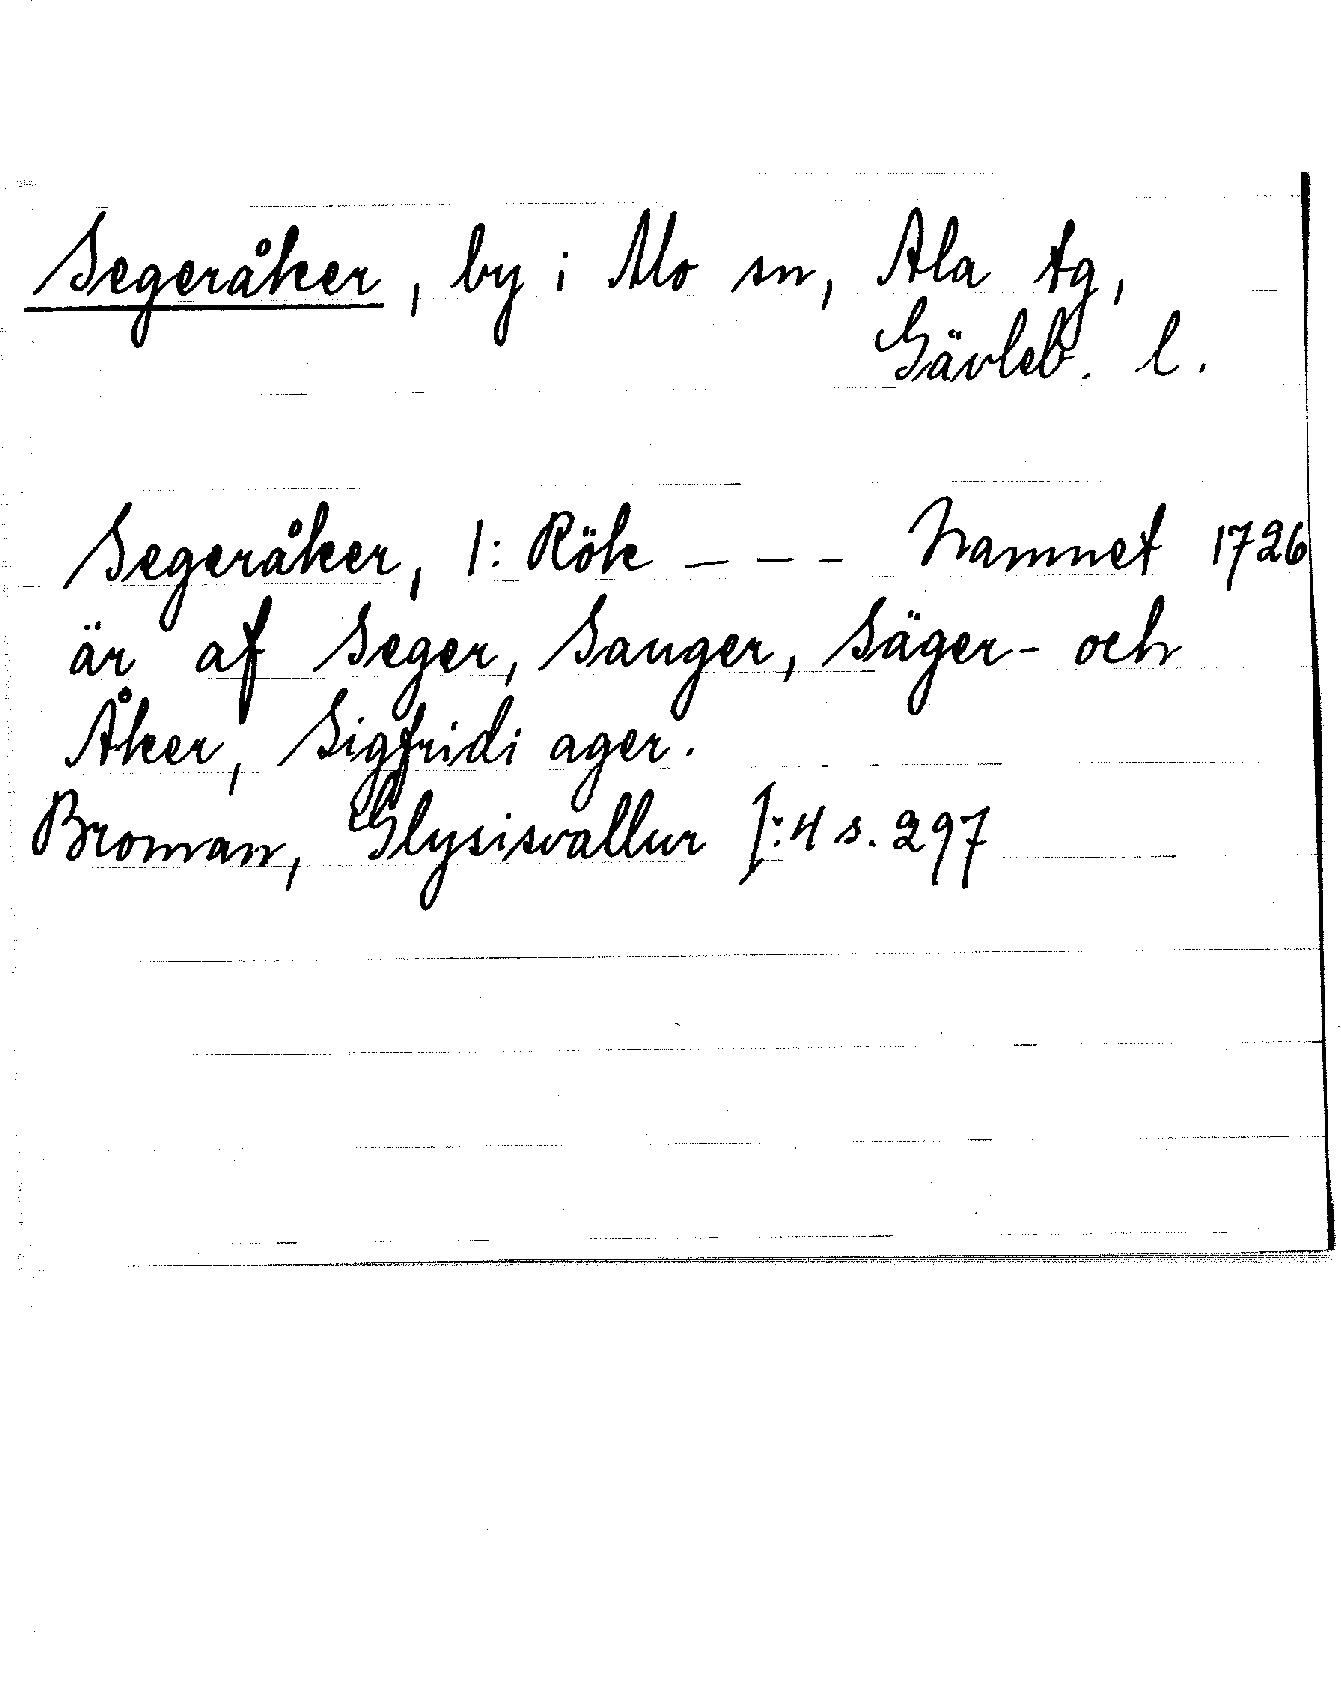 Segeråker, by i Mo sn, Ala tg,
Gävleb. l.
Segeråker, 1: Rök --- Namnet 1726
är af Seger, Sauger, Säger- och
Åker, Sigfridi ager.
Broman, Glysisvallur I:4 s. 297